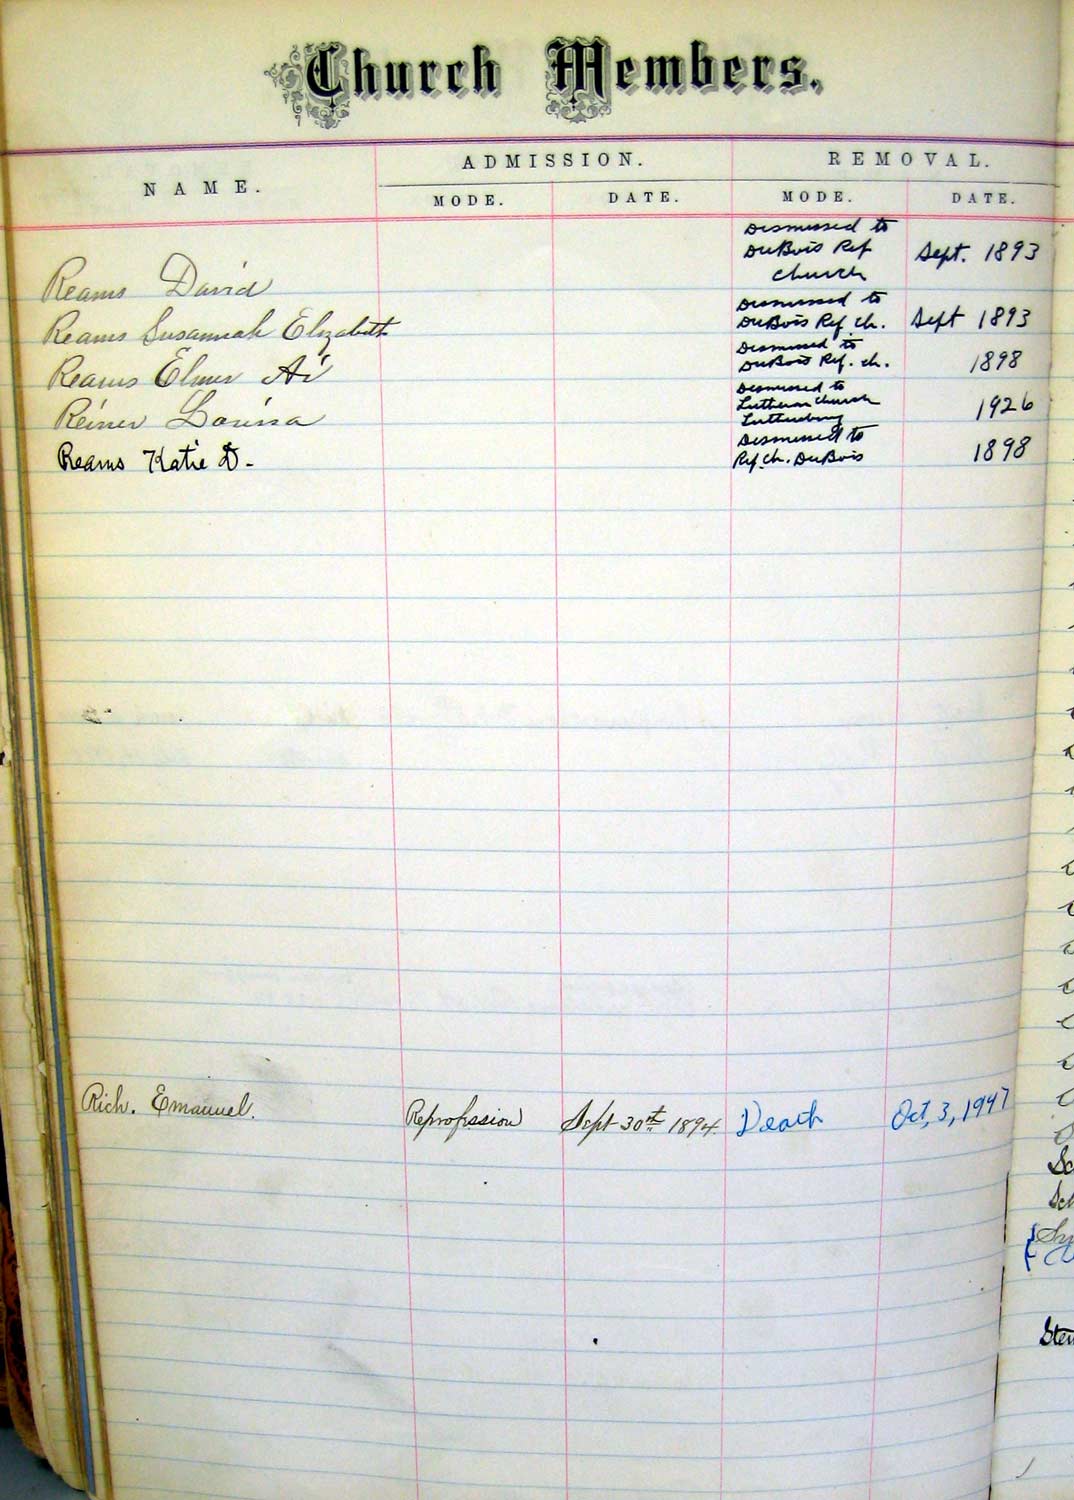 Church Members.
NAME. ADMISSION. REMOVAL.
MODE. DATE. MODE. DATE.
Reams David Dismissed to DuBois Ref Church Sept. 1893
Reams Susannah Elizabeth Dismissed to DuBois Ref. Ch. Sept 1893
Reams Elmer Ai Dismissed to DuBois Ref. Ch. 1898
Reiner Lovissa Dismissed to Lutheran Church Luthersburg 1926
Reams Katie D. Dismissed to Ref. Ch. DuBois 1898
Rich. Emanuel. Reprofession Sept 30th 1894. Death Oct, 3, 1947
Sc
Sch
Sny
Stew